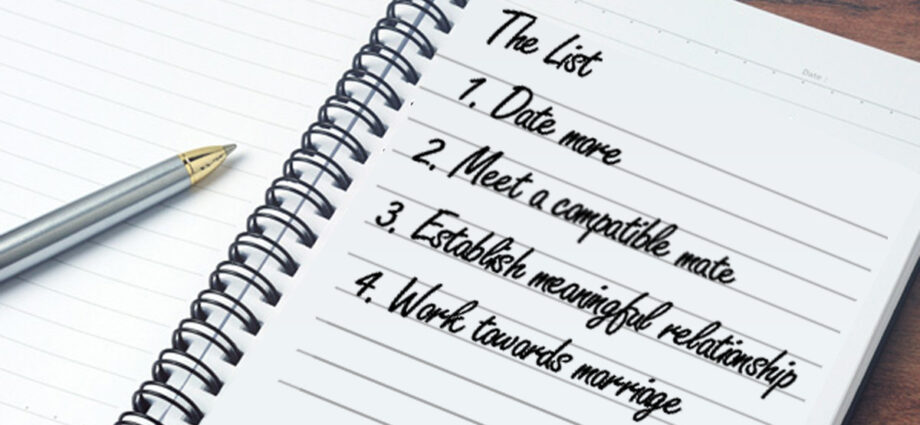 Date :
The List
1. Date more
2. Meet a compatible mate
3. Establish meaningful relationship
4. Work towards marriage